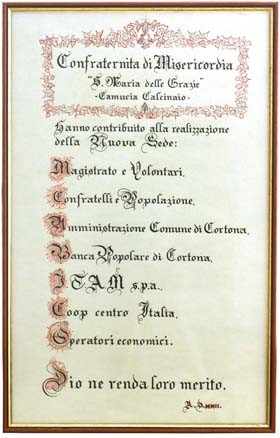 Confraternita di Misericordia
"S. Maria delle Grazie"
-Camucia Calcinaio-
Hanno contribuito alla realizzazione
della Nuova Sede:
Magistrato e Volontari,
Confratelli e Popolazione,
Amministrazione Comune di Cortona,
Banca Popolare di Cortona,
I.T.A.M s.p.a.,
Coop centro Italia,
Operatori economici.
Dio ne renda loro merito.